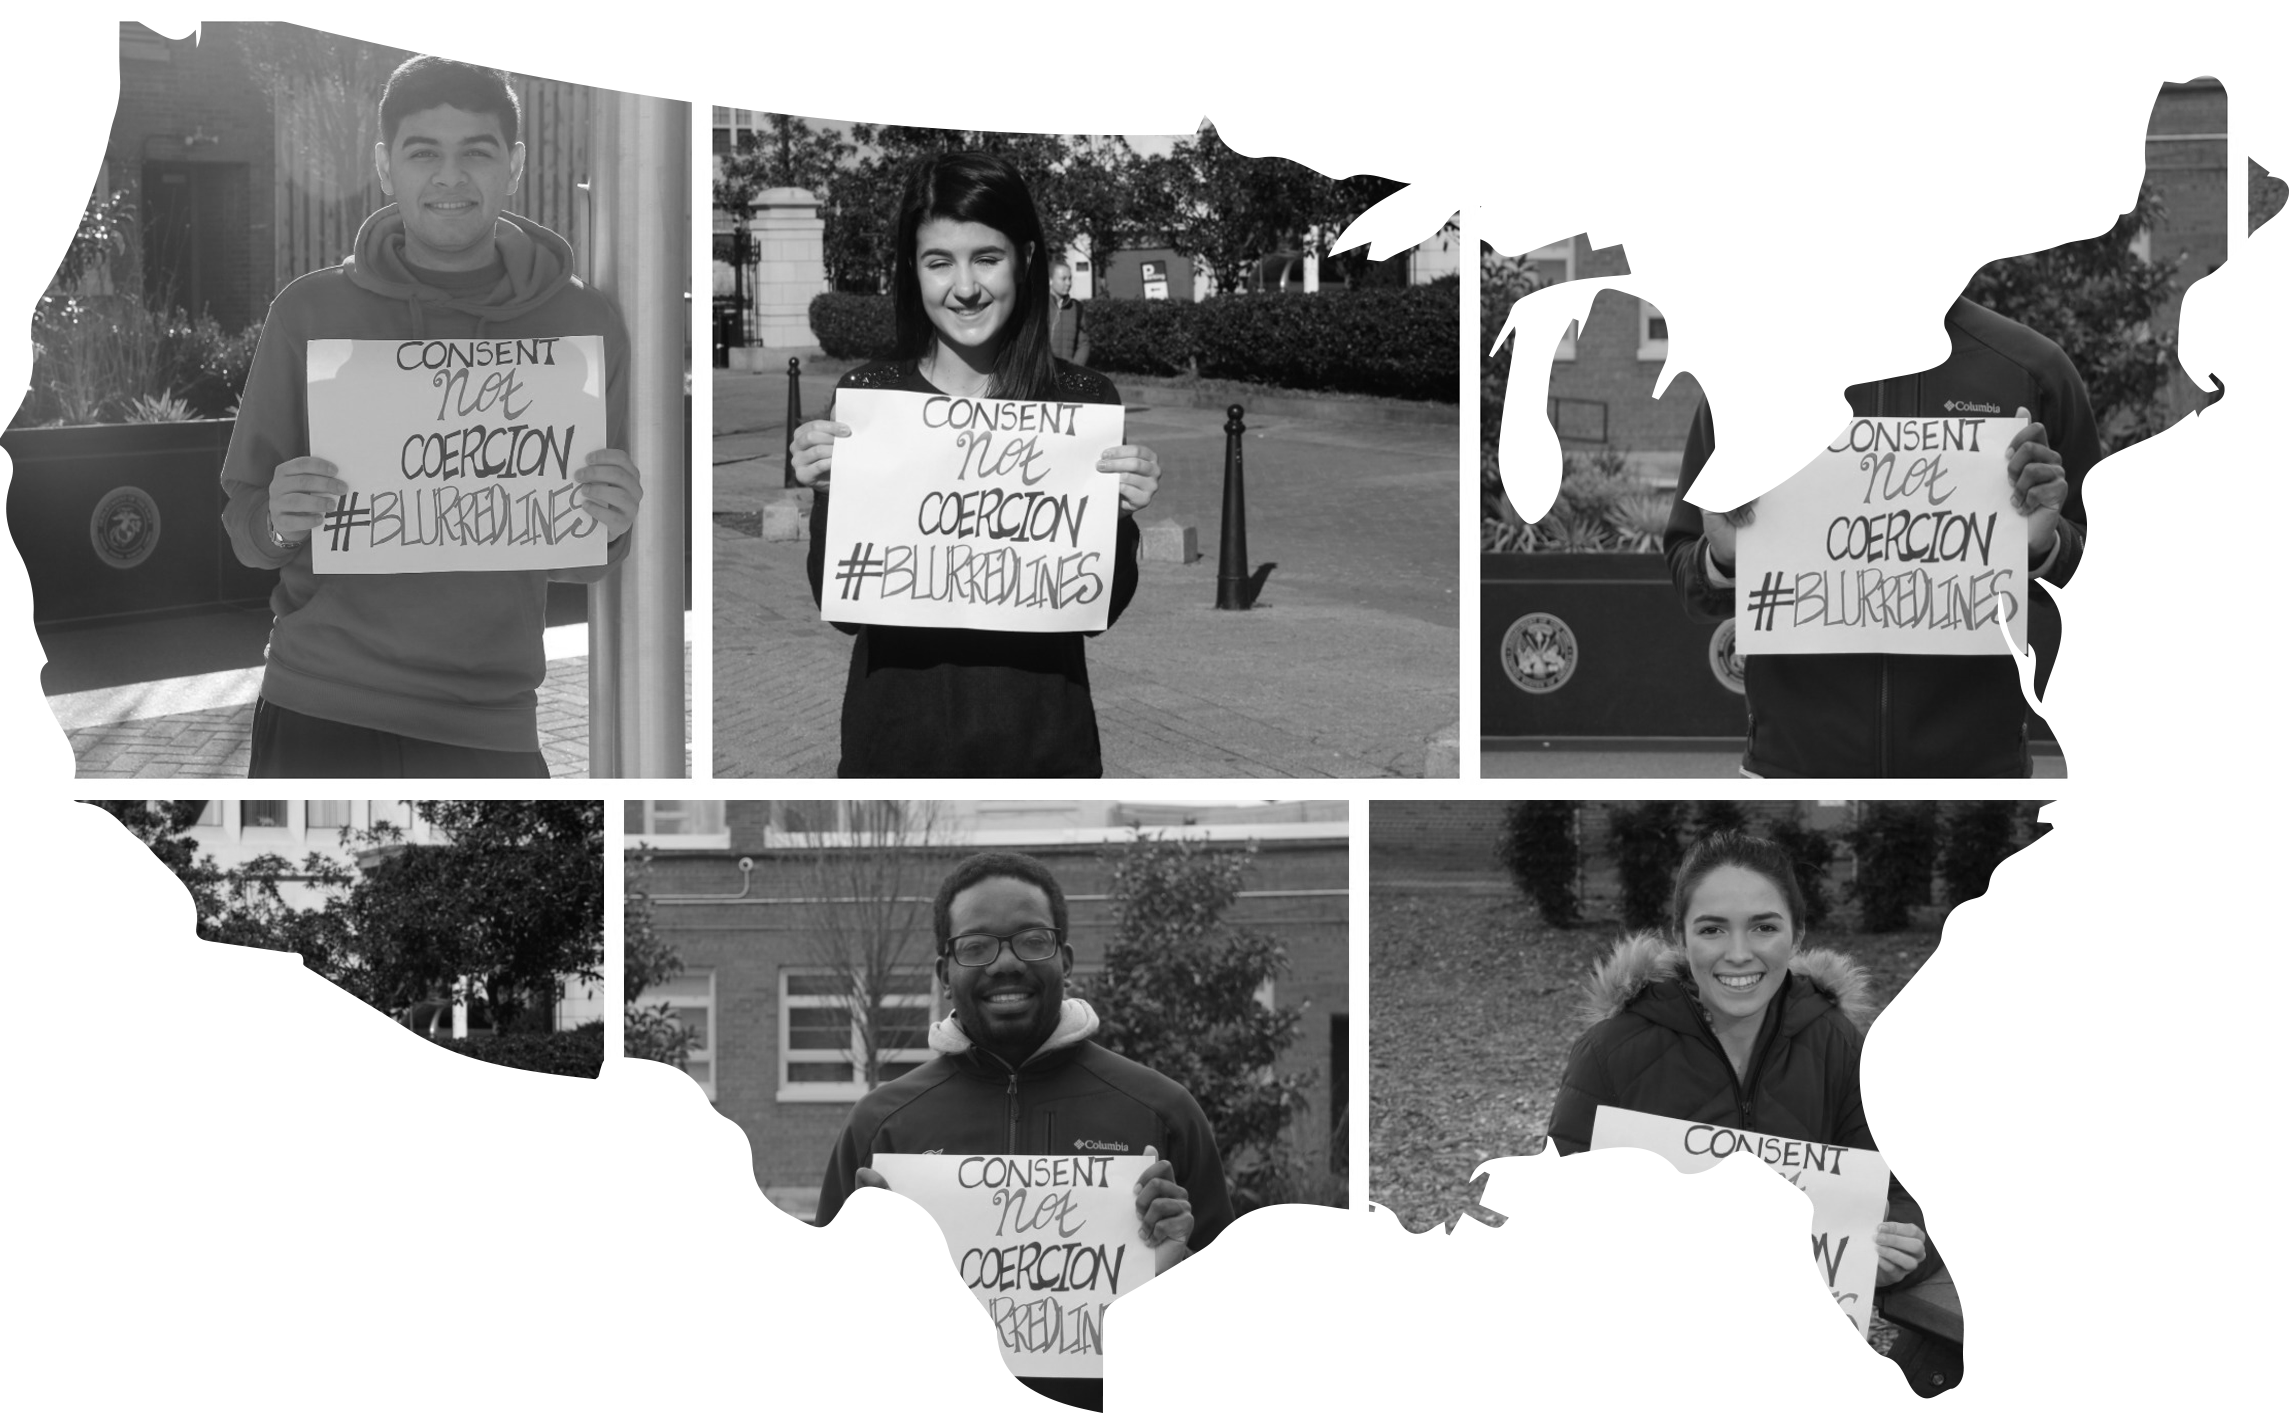 CONSENT
not
COERCION
#BLURREDLINES
P
CONSENT
not
COERCION
#BLURREDLINES
Columbia
CONSENT
not
COERCION
#BLURREDLINES
Columbia
CONSENT
not
COERCION
RREDLIN
CONSENT
ON
ES